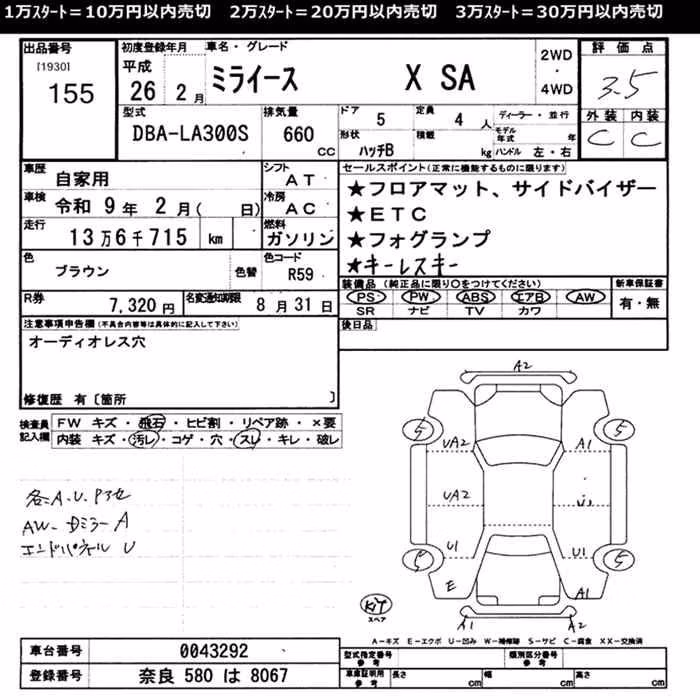 1万スタート＝10万円以内売切　2万スタート＝20万円以内売切　3万スタート＝30万円以内売切
出品番号
[1930]
155
初度登録年月
平成
26 2月
車名・グレード
ミライース X SA
2WD
・
4WD
評価点
3.5
外装 内装
C C
型式
DBA-LA300S
排気量
660 CC
ドア 5
定員 4 人
ディーラー・並行
モデル年式 年
形状 ハッチB
積載 kg
ハンドル 左・右
車歴 自家用
シフト AT
車検 令和 9年 2月( 日)
冷房 AC
走行 13万6千715 km
燃料 ガソリン
色 ブラウン
色替
色コード R59
R券 7,320円
名変通知期限 8月31日
セールスポイント(正常に機能するものに限ります)
★フロアマット、サイドバイザー
★ETC
★フォグランプ
★キーレスキー
装備品(純正品に限り○をつけてください)
新車保証書
PS PW ABS エアB AW
SR ナビ TV カワ
有・無
後日品
注意事項申告欄(不具合内容等は具体的に記入して下さい)
オーディオレス穴
修復歴 有〔箇所 〕
検査員記入欄
FW キズ・飛石・ヒビ割・リペア跡・×要
内装 キズ・汚レ・コゲ・穴・スレ・キレ・破レ
各A.U.
AW- Dミラー A
エンドパネル U
A2
5 5
UA2 A1
UA2
U1 U1
5 5
E A1
A1 A2
KIT
スペア
A-キズ E-エクボ U-凹み W-補修跡 S-サビ C-腐食 XX-交換済
車台番号 0043292
登録番号 奈良 580 は 8067
型式指定番号 参考
類別区分番号 参考
車庫証明用 参考
長さ cm
幅 cm
高さ cm